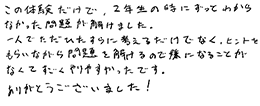 この体験だけで、2年生の時にずっと分から
なかった問題が解けました。
一人でただひたすらに考えるだけでなく、ヒントを
もらいながら問題を解けるので嫌になることが
なくてすごくやりやすかったです。
ありがとうございました!